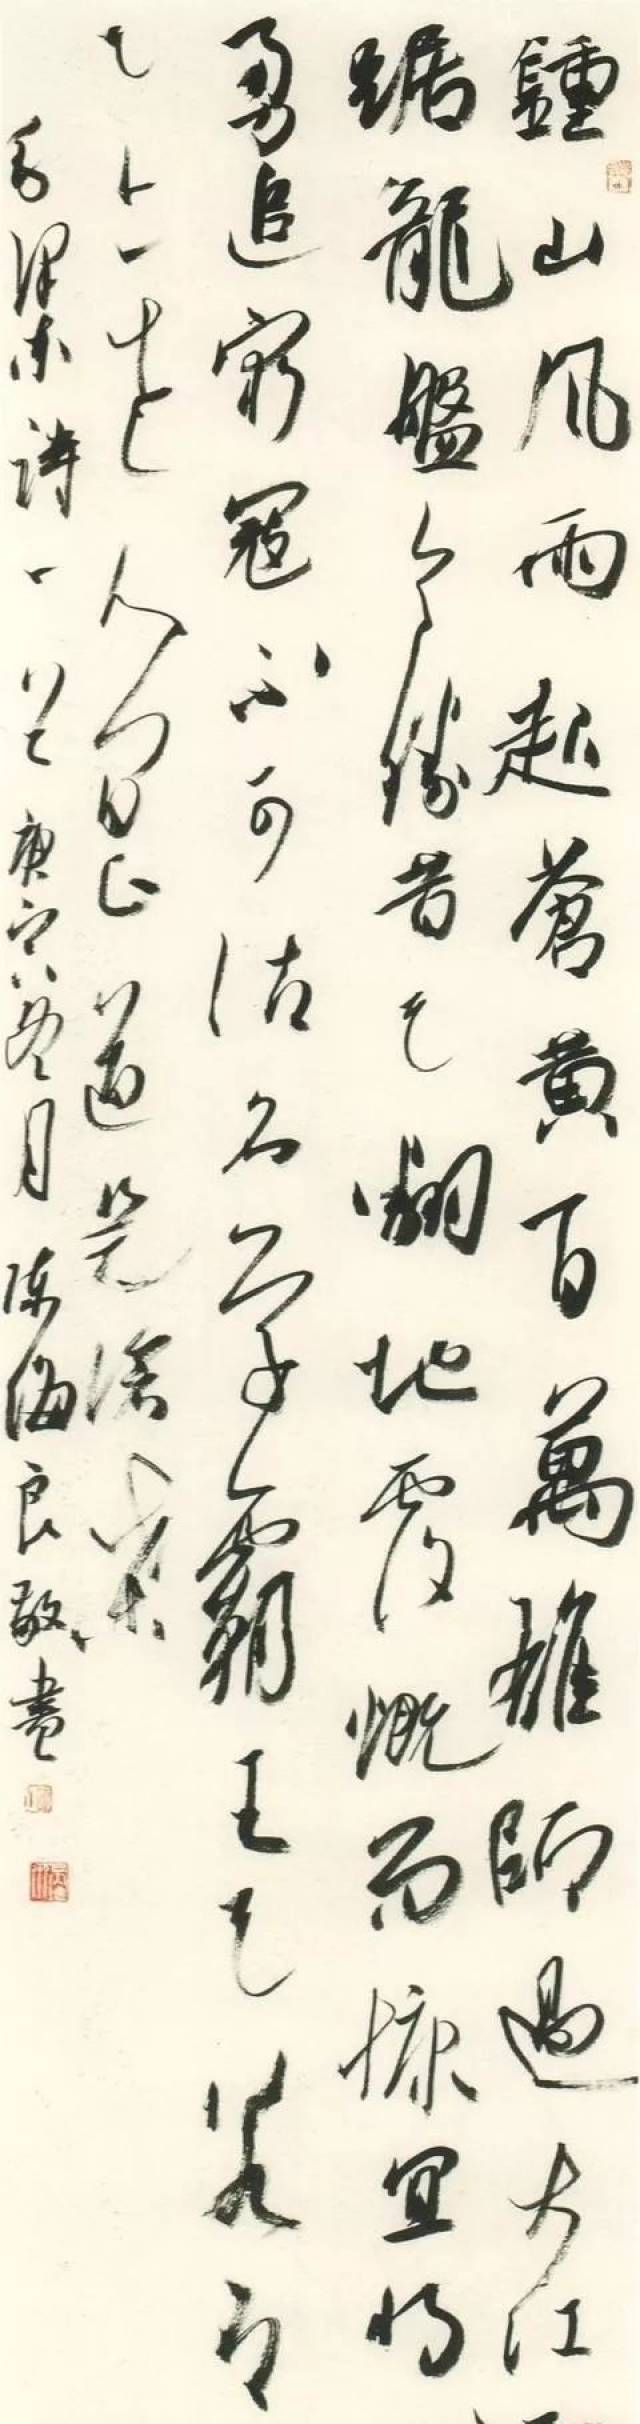 鍾山風雨起蒼黃百萬雄師過大江
踞龍盤今勝昔天翻地覆慨而慷宜將
勇追窮寇不可沽名學霸王天若有
天亦老人間正道是滄桑
毛澤東詩一首庚寅冬月陳海良敬書